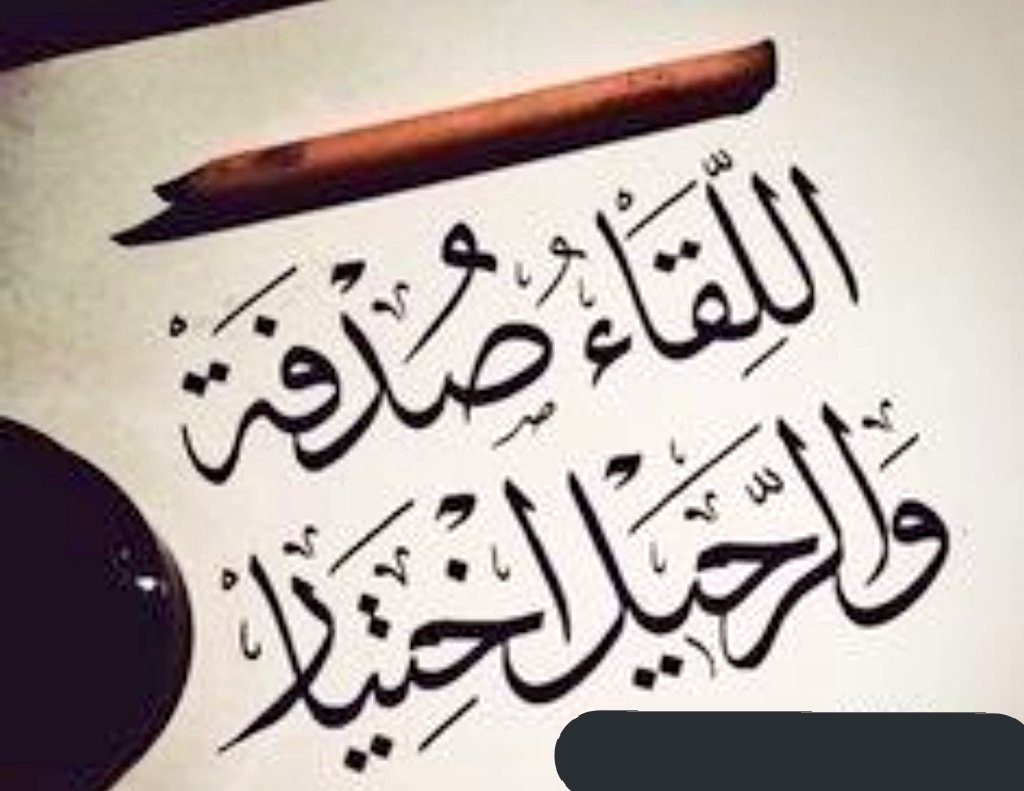 اللِّقَاءُ صُدْفَةْ
وَالرَّحِيْلَ اخْتِيَارْ